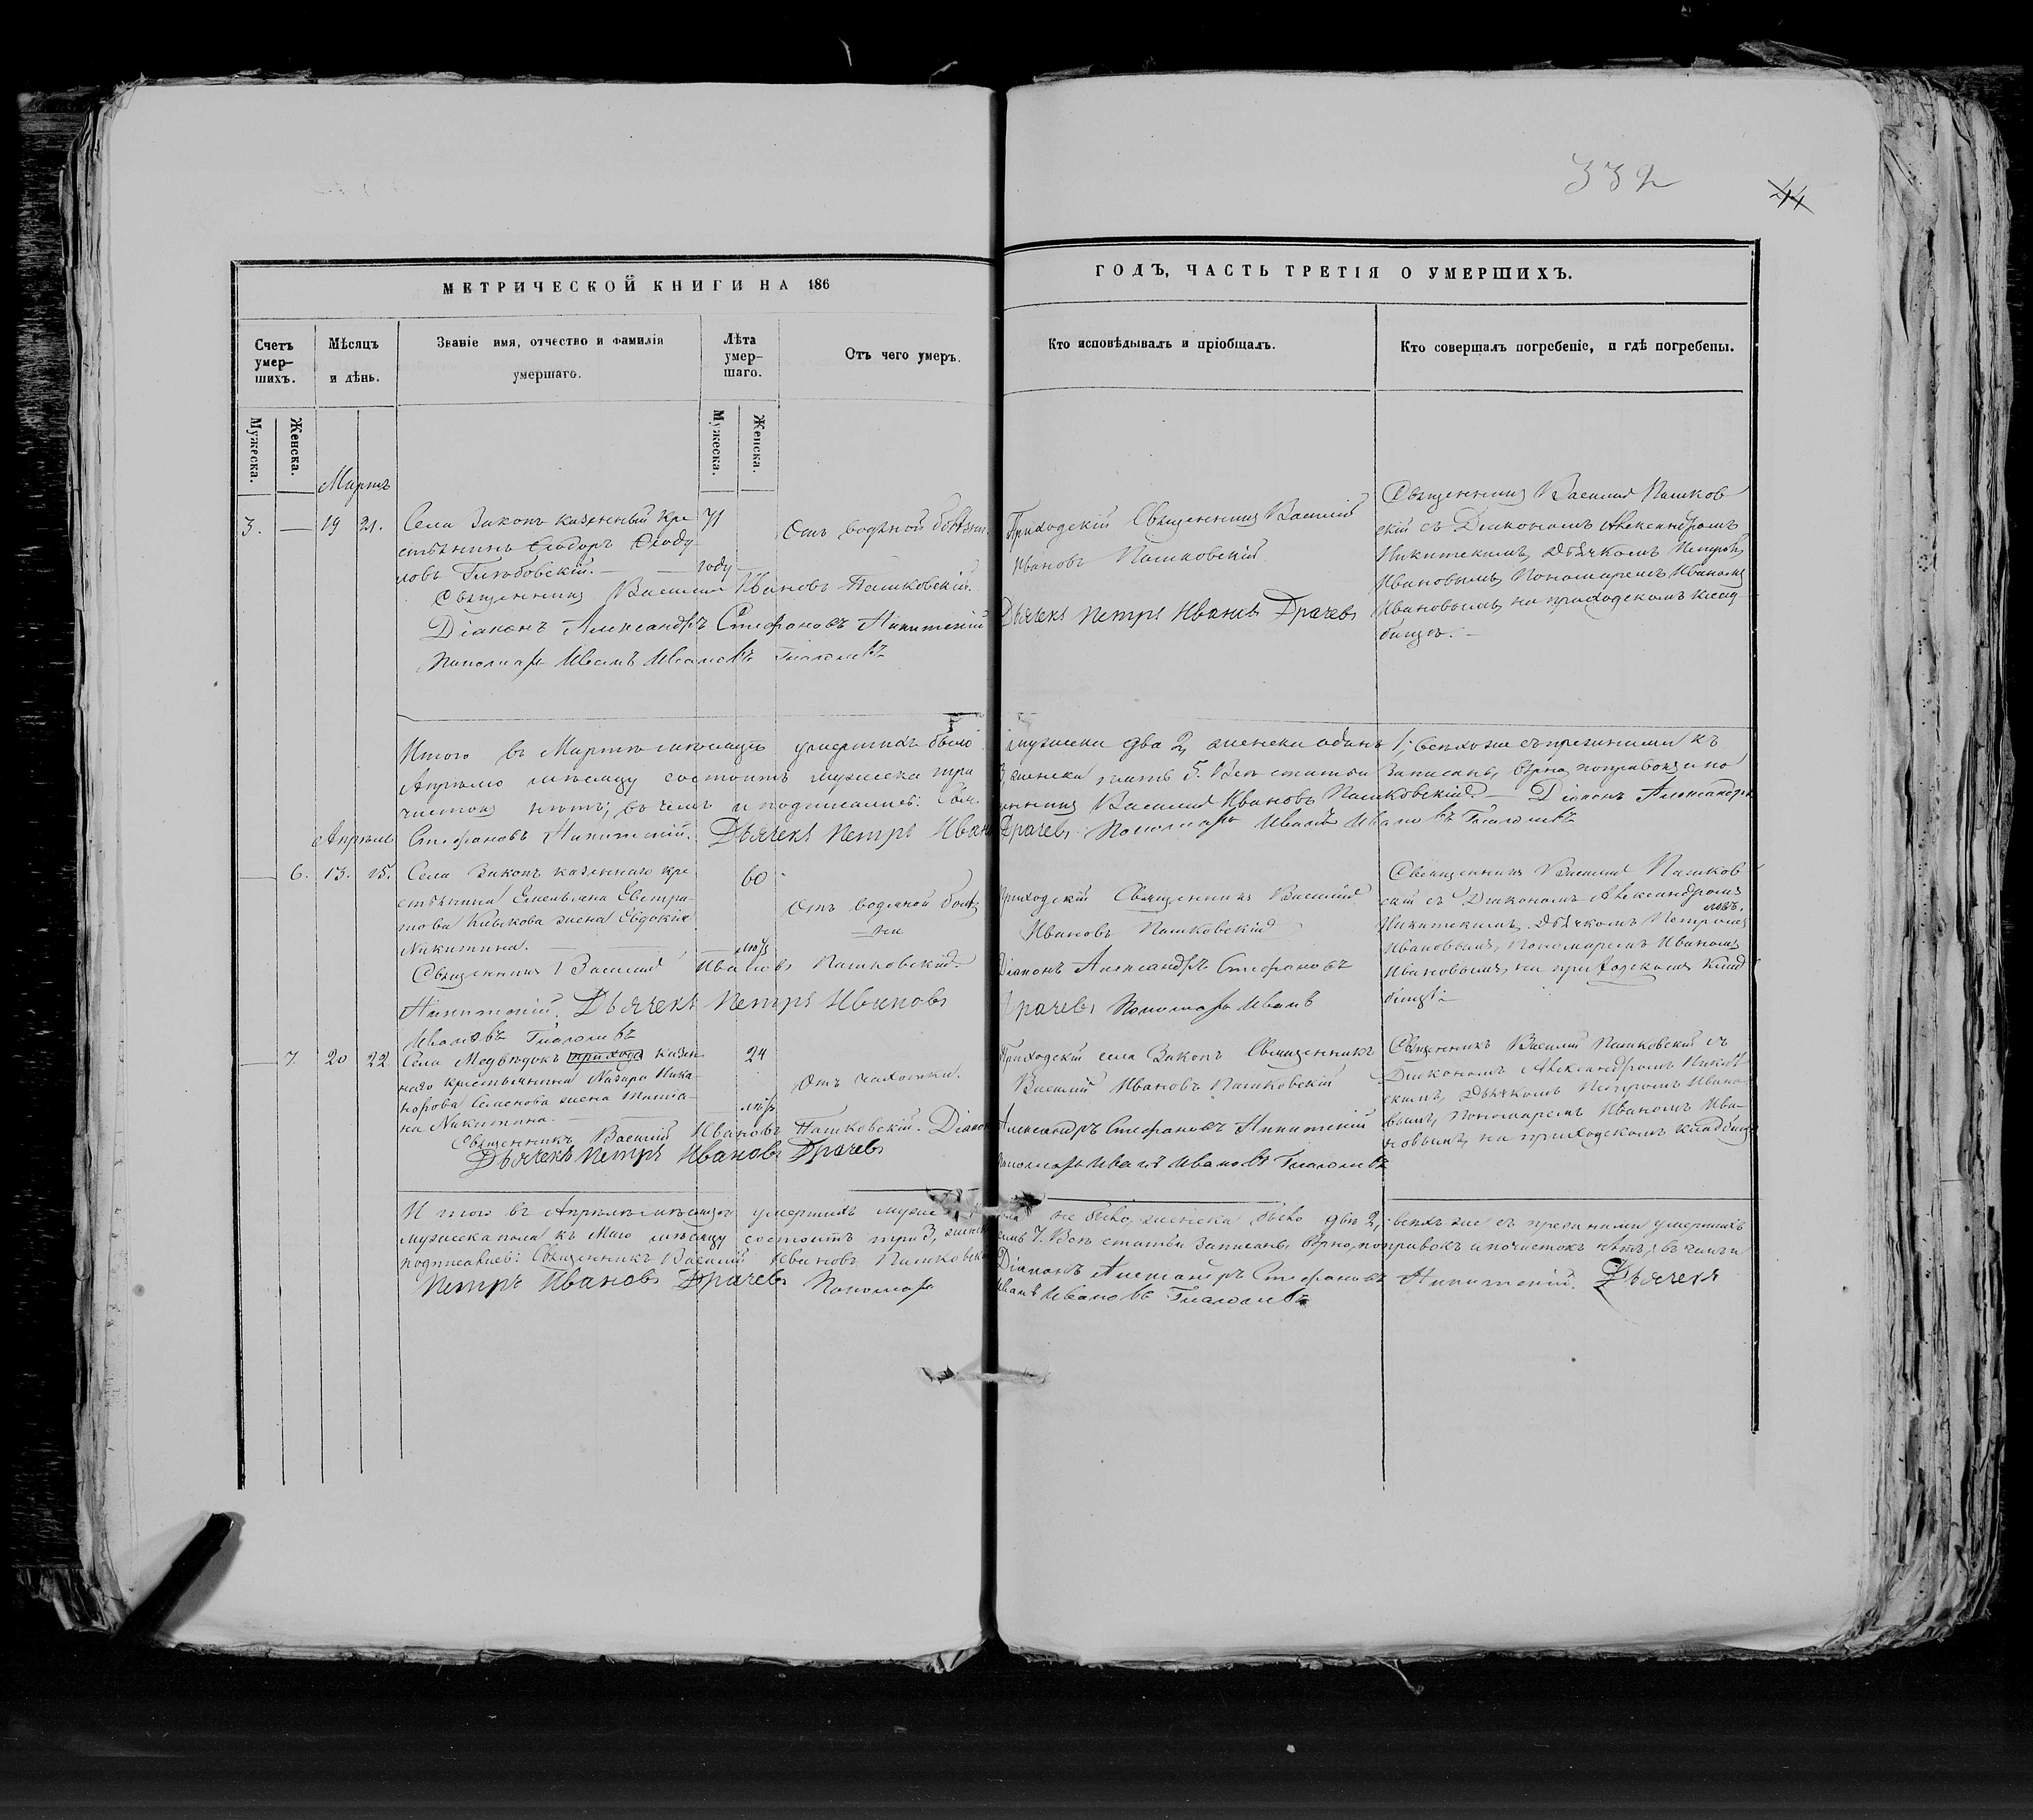 332
44
МЕТРИЧЕСКОЙ КНИГИ НА 186
ГОДЪ, ЧАСТЬ ТРЕТІЯ О УМЕРШИХЪ.
Счетъ умер-шихъ.
Мѣсяцъ и дѣнь.
Званіе имя, отчество и фамилія умершаго.
Лѣта умер-шаго.
Отъ чего умеръ.
Кто исповѣдывалъ и пріобщалъ.
Кто совершалъ погребеніе, и гдѣ погребены.
Мужеска.
Женска.
Мужеска.
Женска.
Мартъ
3. — 19 21.
Села Законъ казенный кре
стьянинъ Ѳедоръ Ѳеоду
ловъ Глѣбовскій. —
71
году
Отъ водяной болѣзни.
Приходскій Священникъ Василій
Ивановъ Пашковскій
Священникъ Василій Пашков
скій съ Діакономъ Александромъ
Никитскимъ, Дьячкомъ Петромъ
Ивановымъ Пономаремъ Иваномъ
Ивановымъ на приходскомъ клад-
бищѣ. —
Священникъ Василій Ивановъ Пашковскій.
Діаконъ Александръ Стефановъ Никитскій
Дьячекъ Петръ Ивановъ Драчевъ
Пономарь Иванъ Ивановъ
Итого въ Мартѣ мѣсяцѣ умершихъ было мужеска два 2, женска одинъ 1; всѣхъ же съ прежними къ
Апрѣлю мѣсяцу состоитъ мужеска три 3 женска пять 5. Всѣ статьи записаны вѣрно, поправокъ и по
чистокъ нѣтъ; въ чемъ и подписались: Священникъ Василій Ивановъ Пашковскій. — Діаконъ Александръ
Стефановъ Никитскій. Дьячекъ Петръ Ивановъ Драчевъ. Пономарь Иванъ Ивановъ
Апрѣль
— 6. 13. 15.
Села Законъ казеннаго кре
стьянина Емельяна Евстра-
това жена Евдокія
Никитина. —
60
лѣтъ
Отъ водяной болѣз
ни
Приходскій Священникъ Василій
Ивановъ Пашковскій
Священникъ Василій Пашков
скій съ Діакономъ Александромъ
Никитскимъ, Дьячкомъ Петромъ
Ивановымъ, Пономаремъ Иваномъ
Ивановымъ, на приходскомъ клад
бищѣ
Священникъ Василій Ивановъ Пашковскій.
Діаконъ Александръ Стефановъ
Никитскій. Дьячекъ Петръ Ивановъ Драчевъ Пономарь Иванъ
Ивановъ
— 7 20 22
Села Медвѣдокъ прихода казен
наго крестьянина Назара Ника-
норова Семенова жена Татіа-
на Никитина.
24
лѣтъ
Отъ чахотки.
Приходскій села Законъ Священникъ
Василій Ивановъ Пашковскій
Священникъ Василій Пашковскій съ
Діакономъ Александромъ Никит
скимъ, Дьячкомъ Петромъ Ивано
вымъ, Пономаремъ Иваномъ Ива-
новымъ, на приходскомъ кладбищѣ
Священникъ Василій Ивановъ Пашковскій. Діаконъ Александръ Стефановъ Никитскій
Дьячекъ Петръ Ивановъ Драчевъ
Пономарь Иванъ Ивановъ
Итого въ Апрѣлѣ мѣсяцѣ умершихъ не было, женска было двѣ 2, всѣхъ же съ прежними умершихъ
мужеска пола къ Маю мѣсяцу состоитъ три 3, женска семь 7. Всѣ статьи записаны вѣрно, поправокъ и почистокъ нѣтъ; въ чемъ и
подписались: Священникъ Василій Ивановъ Пашковскій Діаконъ Александръ Стефановъ Никитскій. Дьячекъ
Петръ Ивановъ Драчевъ Пономарь Иванъ Ивановъ